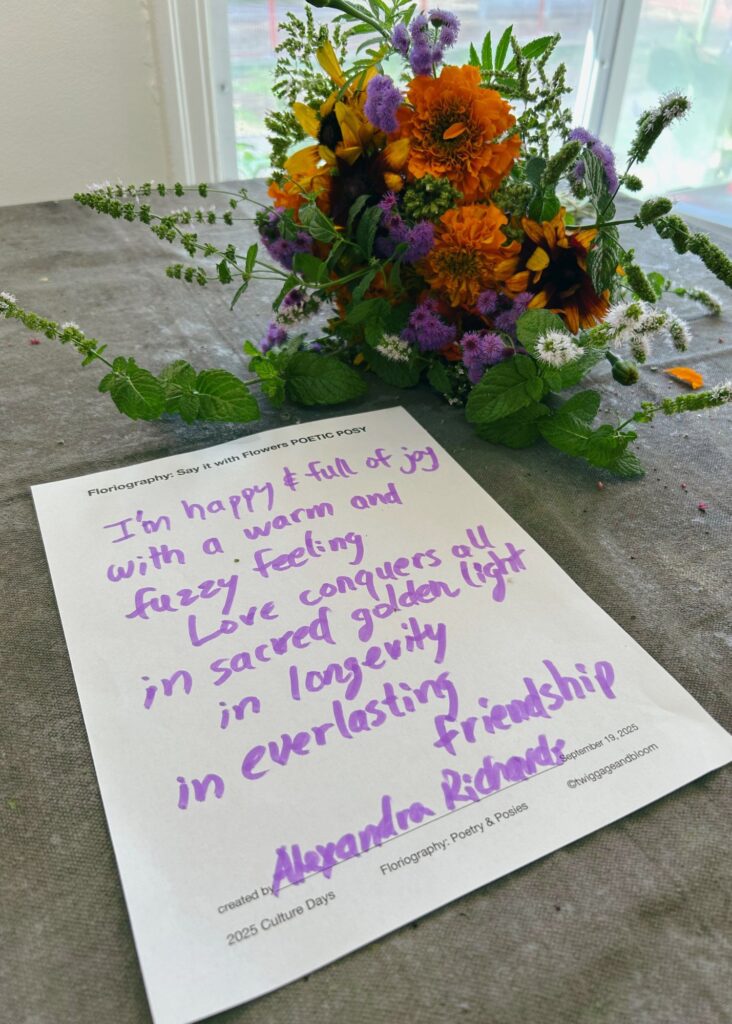 Floriography: Say it with Flowers POETIC POSY
I'm happy & full of joy
with a warm and
fuzzy feeling
Love conquers all
in sacred golden light
in longevity
in everlasting
friendship
September 19, 2025
©twiggageandbloom
created by Alexandra Richards
Floriography: Poetry & Posies
2025 Culture Days